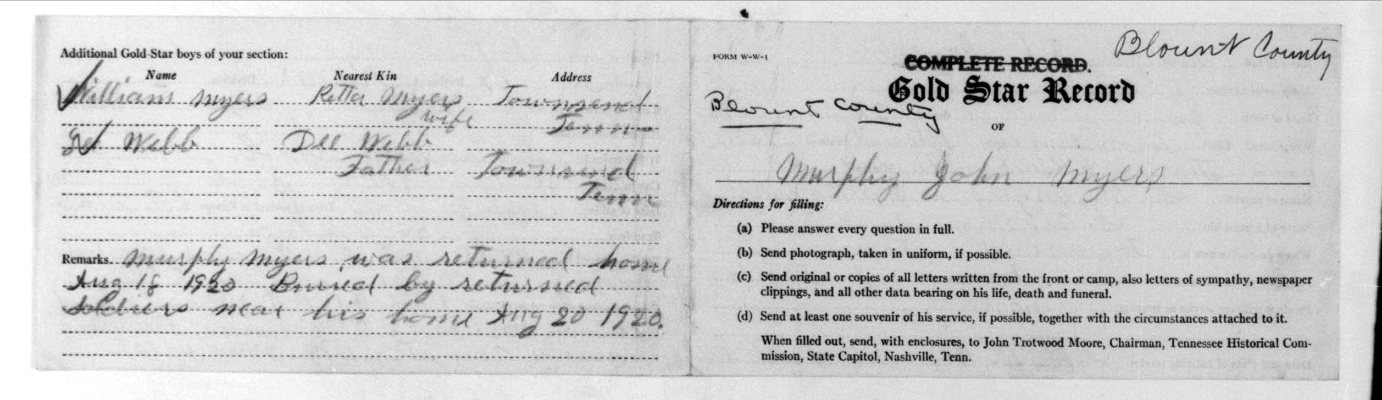 Additional Gold-Star boys of your section:
Name Nearest Kin Address
William Myers Retta Myers Townsend
wife Tenn
Webb Dee Webb
Father Townsend
Tenn
Remarks. Murphy Myers was returned home
Aug 18 1920 Buried by returned
soldiers near his home Aug 20 1920.
FORM W-W-1
Blount County
COMPLETE RECORD.
Gold Star Record
Blount County
OF
Murphy John Myers
Directions for filling:
(a) Please answer every question in full.
(b) Send photograph, taken in uniform, if possible.
(c) Send original or copies of all letters written from the front or camp, also letters of sympathy, newspaper
clippings, and all other data bearing on his life, death and funeral.
(d) Send at least one souvenir of his service, if possible, together with the circumstances attached to it.
When filled out, send, with enclosures, to John Trotwood Moore, Chairman, Tennessee Historical Com-
mission, State Capitol, Nashville, Tenn.